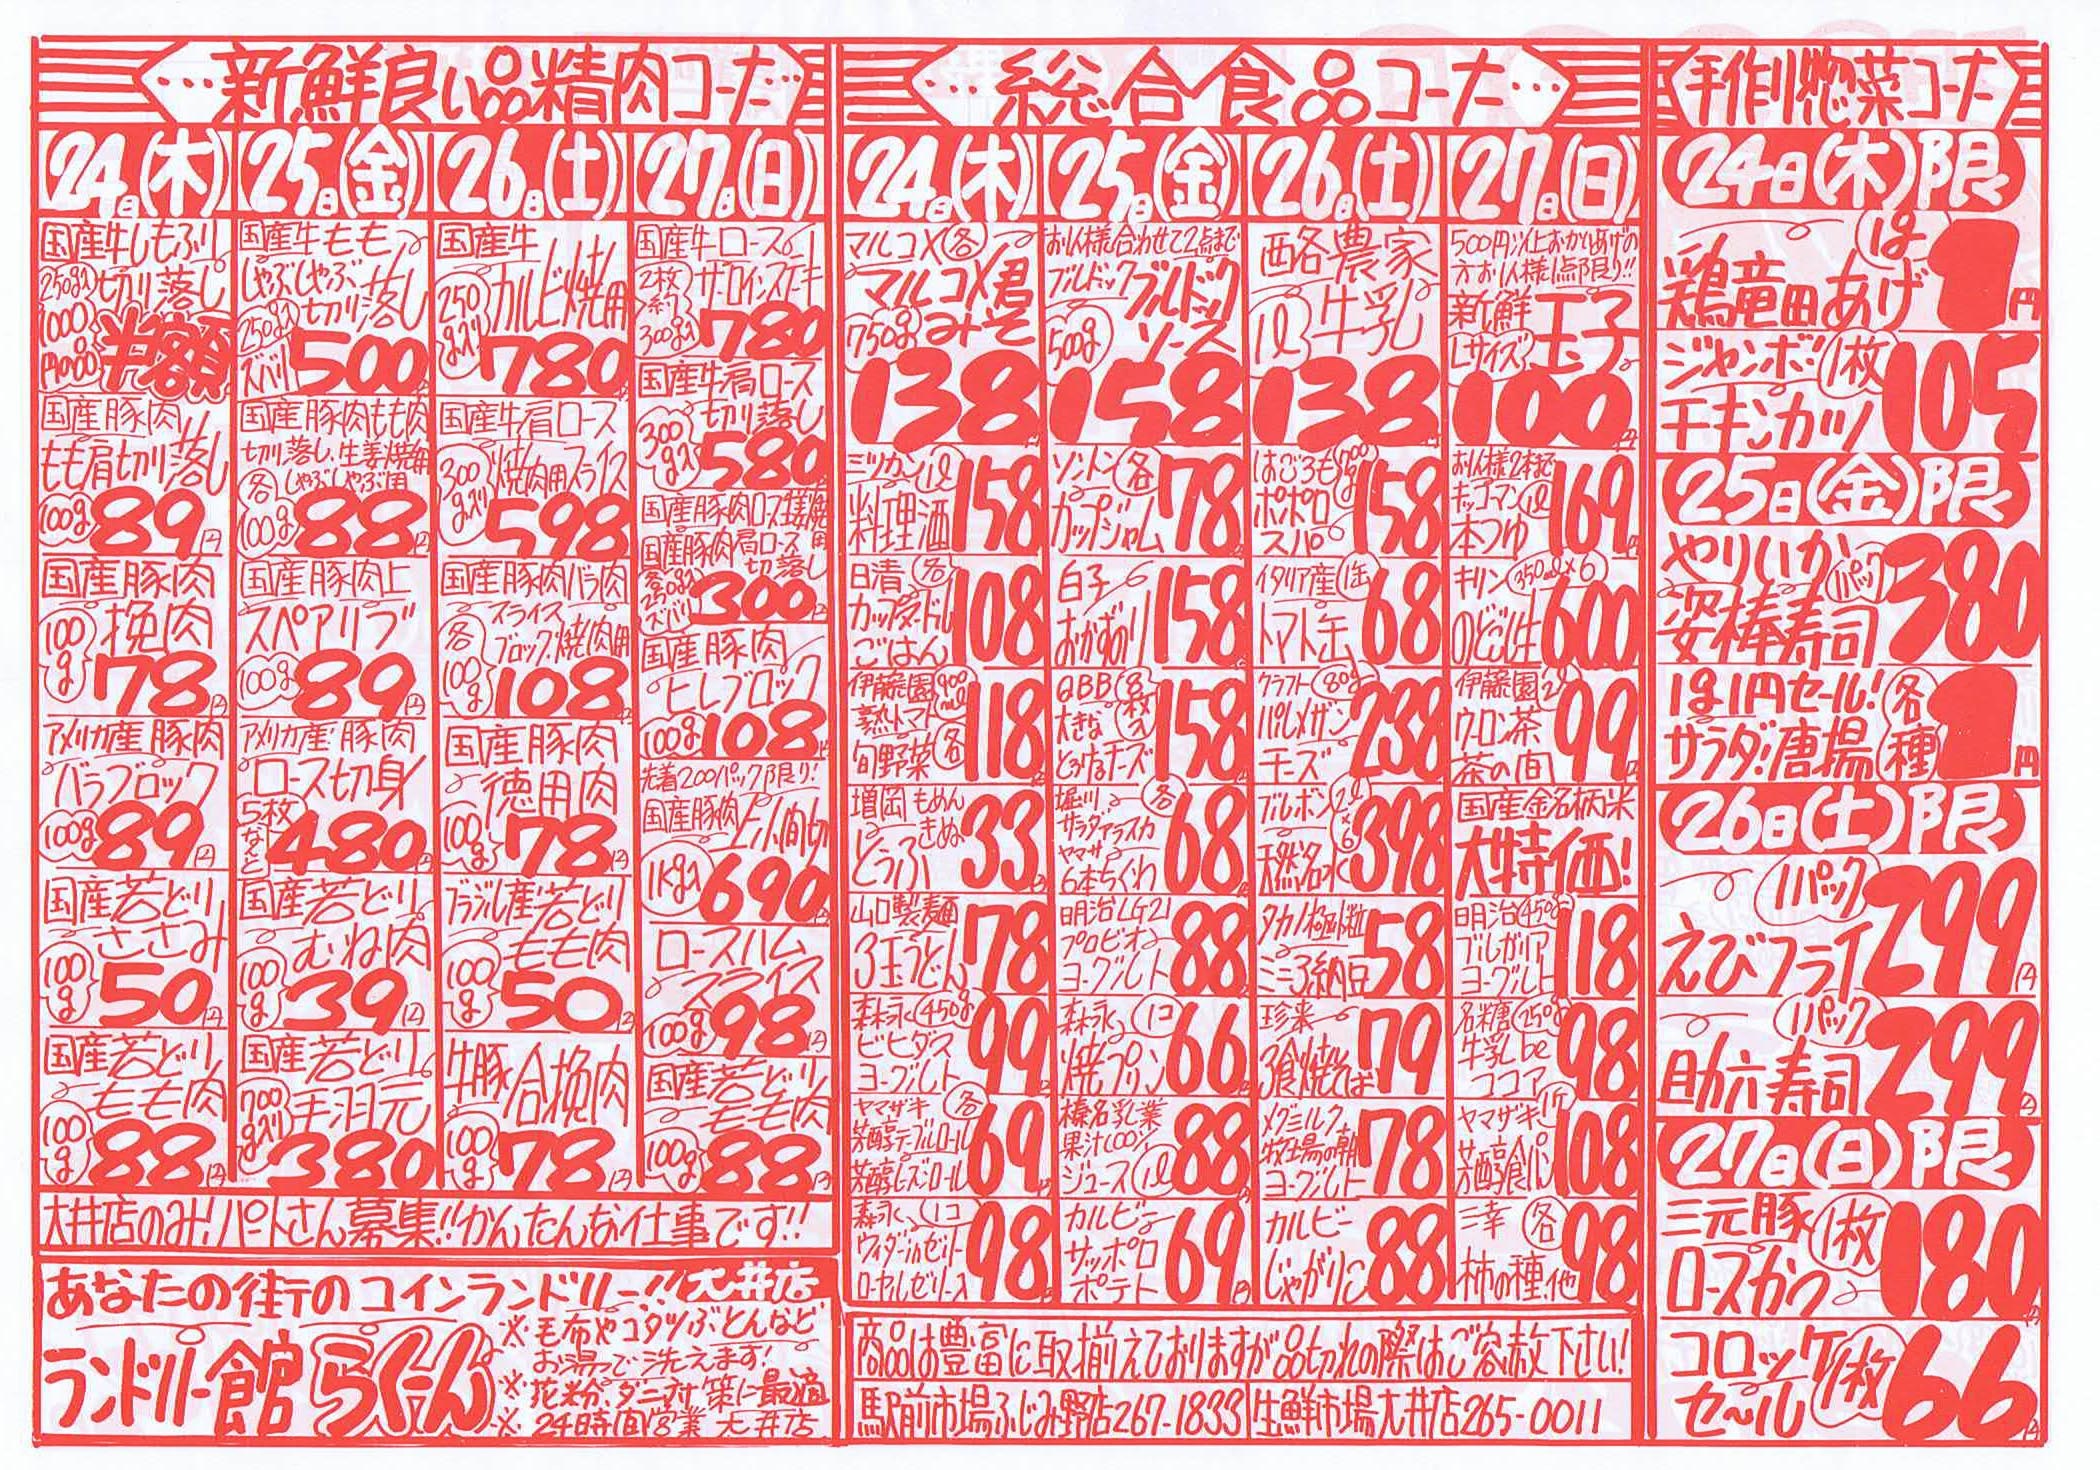 …新鮮良い品精肉コーナー
24日(木)
国産牛しもふり
250g入 切り落し
1000円の品
半額
国産豚肉
もも肩切り落し
100g 89円
国産豚肉
挽肉
100g 78円
アメリカ産豚肉
バラブロック
100g 89円
国産若どり
ささみ
100g 50円
国産若どり
もも肉
100g 88円
25日(金)
国産牛もも
しゃぶしゃぶ
切り落し
250g入
ズバリ 500円
国産豚肉もも肉
切り落し、生姜焼用
しゃぶしゃぶ用
各100g 88円
国産豚肉上
スペアリブ
100g 89円
アメリカ産豚肉
ロース切身
5枚なんと 480円
国産若どり
むね肉
100g 39円
国産若どり
手羽元
700g入り 380円
26日(土)
国産牛
カルビ焼用
250g入り 780円
国産牛肩ロース
焼肉用スライス
300g入り 598円
国産豚肉バラ肉
スライス
ブロック、焼肉用
各100g 108円
国産豚肉
徳用肉
100g 78円
ブラジル産若どり
もも肉
100g 50円
牛豚合挽肉
100g 78円
27日(日)
国産牛ロース
サーロインステーキ
2枚約300g入 780円
国産牛肩ロース
切り落し
300g入 580円
国産豚肉ロース生姜焼用
国産豚肉肩ロース切落し
各250g入 ズバリ 300円
国産豚肉
ヒレブロック
100g 108円
先着200パック限り!
国産豚肉上小間切
1kg入 690円
ロースハム
スライス
100g 98円
国産若どり
もも肉
100g 88円
大井店のみ!パートさん募集!!かんたんなお仕事です!!
あなたの街のコインランドリー!!大井店
ランドリー館 らくーん
※毛布やコタツぶとんなど
お湯で洗えます!
※花粉、ダニ対策に最適
※24時間営業 大井店
…総合食品コーナー…
24日(木)
マルコメ 各
マルコメ君
みそ
750g 138円
ミツカン 1ℓ
料理酒 158
日清 各
カップヌードル
ごはん 108
伊藤園 900ml
熟トマト
旬野菜 各 118
増岡 もめん
きぬ
とうふ 33円
山口製麺
3玉うどん 78
森永 450g
ビヒダス
ヨーグルト 99円
ヤマザキ 各
芳醇テーブルロール
芳醇レーズンロール 69円
森永 1コ
ウイダーinゼリー
ローヤルゼリー入 98円
25日(金)
お1人様合わせて2点まで
ブルドック ブルドック
ソース
500g 158円
ソントン 各
カップジャム 78
白子
おかずのり 158
QBB 8枚入
大きな
とろけるチーズ 158
堀川 各
サラダイラスカ
ヤマサ
6本ちくわ 68
明治LG21
プロビオ
ヨーグルト 88
森永 1コ
焼プリン 66
榛名乳業
果汁100%
ジュース 1ℓ 88
カルビー
サッポロ
ポテト 69円
26日(土)
酪農家
1ℓ 牛乳
138円
はごろも 700g
ポポロ
スパ 158
イタリア産 1缶
トマト缶 68
クラフト 80g
パルメザン
チーズ 238
ブルボン 2ℓ×6
天然名水 398
タカノ極小粒
ミニ3納豆 58
珍来
3食焼そば 79
メグミルク
牧場の朝
ヨーグルト 78
カルビー
じゃがりこ 88
27日(日)
500円以上お買いあげの
方お1人様1点限り!!
新鮮
Lサイズ 玉子
100円
お1人様2本まで
キッコーマン 1ℓ
本つゆ 169
キリン 350ml×6
のどごし生 600
伊藤園 2ℓ
ウーロン茶
茶の間 99円
国産金名柄米
大特価!
明治 450g
ブルガリア
ヨーグルト 118
名糖 250g
牛乳be
ココア 98
ヤマザキ 1斤
芳醇食パン 108
三幸 各
柿の種、他 98
商品は豊富に取揃えておりますが品切れの際はご容赦下さい!
駅前市場ふじみ野店267-1833 生鮮市場大井店265-0011
手作り惣菜コーナー
24日(木)限
1g 1円
鶏竜田あげ
ジャンボ 1枚
チキンカツ 105
25日(金)限
やりいか 1パック
姿棒寿司 380
1g1円セール! 各種
サラダ!唐揚 1円
26日(土)限
1パック
えびフライ 299円
1パック
助六寿司 299円
27日(日)限
三元豚 1枚
ロースかつ 180円
コロッケ 1枚
セール 66円